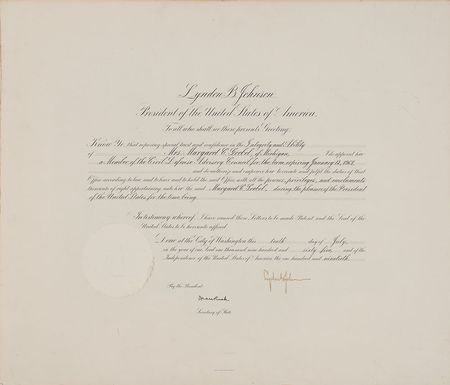 Lyndon B Johnson
President of the United States of America.
To all who shall see these presents, Greeting:
Know Ye, that reposing special trust and confidence in the Integrity and Ability
of Mrs. Margaret C. of Michigan, I do appoint her
a Member of the Civil Defense Advisory Council for the term expiring January 12, 1968,
and do authorize and empower her to execute and fulfil the duties of that
Office according to law, and to have and to hold the said Office, with all the powers, privileges, and emoluments
thereunto of right appertaining unto her the said Margaret C. during the pleasure of the President
of the United States for the time being.
In testimony whereof, I have caused these Letters to be made Patent and the Seal of the
United States to be hereunto affixed.
Done at the City of Washington this tenth day of July,
in the year of our Lord one thousand nine hundred and sixty five and of the
Independence of the United States of America the one hundred and ninetieth.
By the President:
Dean Rusk
Secretary of State.